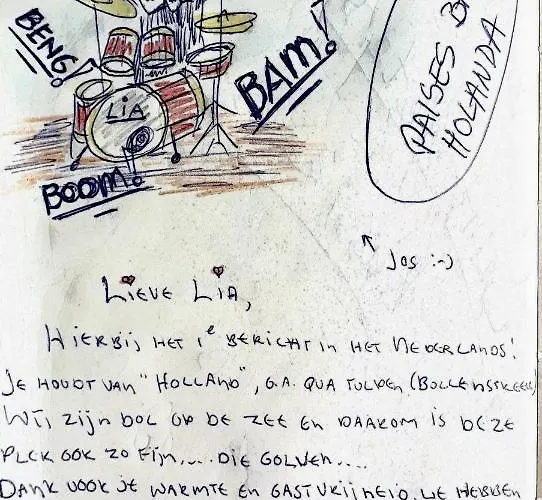 BENG!
LIA
BAM!
BOOM!
PAISES
HOLANDA
Jos :-)
LIEVE LIA,
HIERBIJ HET 1e BERICHT IN HET NEDERLANDS!
JE HOUDT VAN "HOLLAND", O.A. QUA TULPEN (BOLLENSTREEK)
WIJ ZIJN DOL OP DE ZEE EN DAAROM IS DEZE
PLEK OOK ZO FIJN.... DIE GOLVEN....
DANK VOOR JE WARMTE EN GASTVRIJHEID. WE HEBBEN